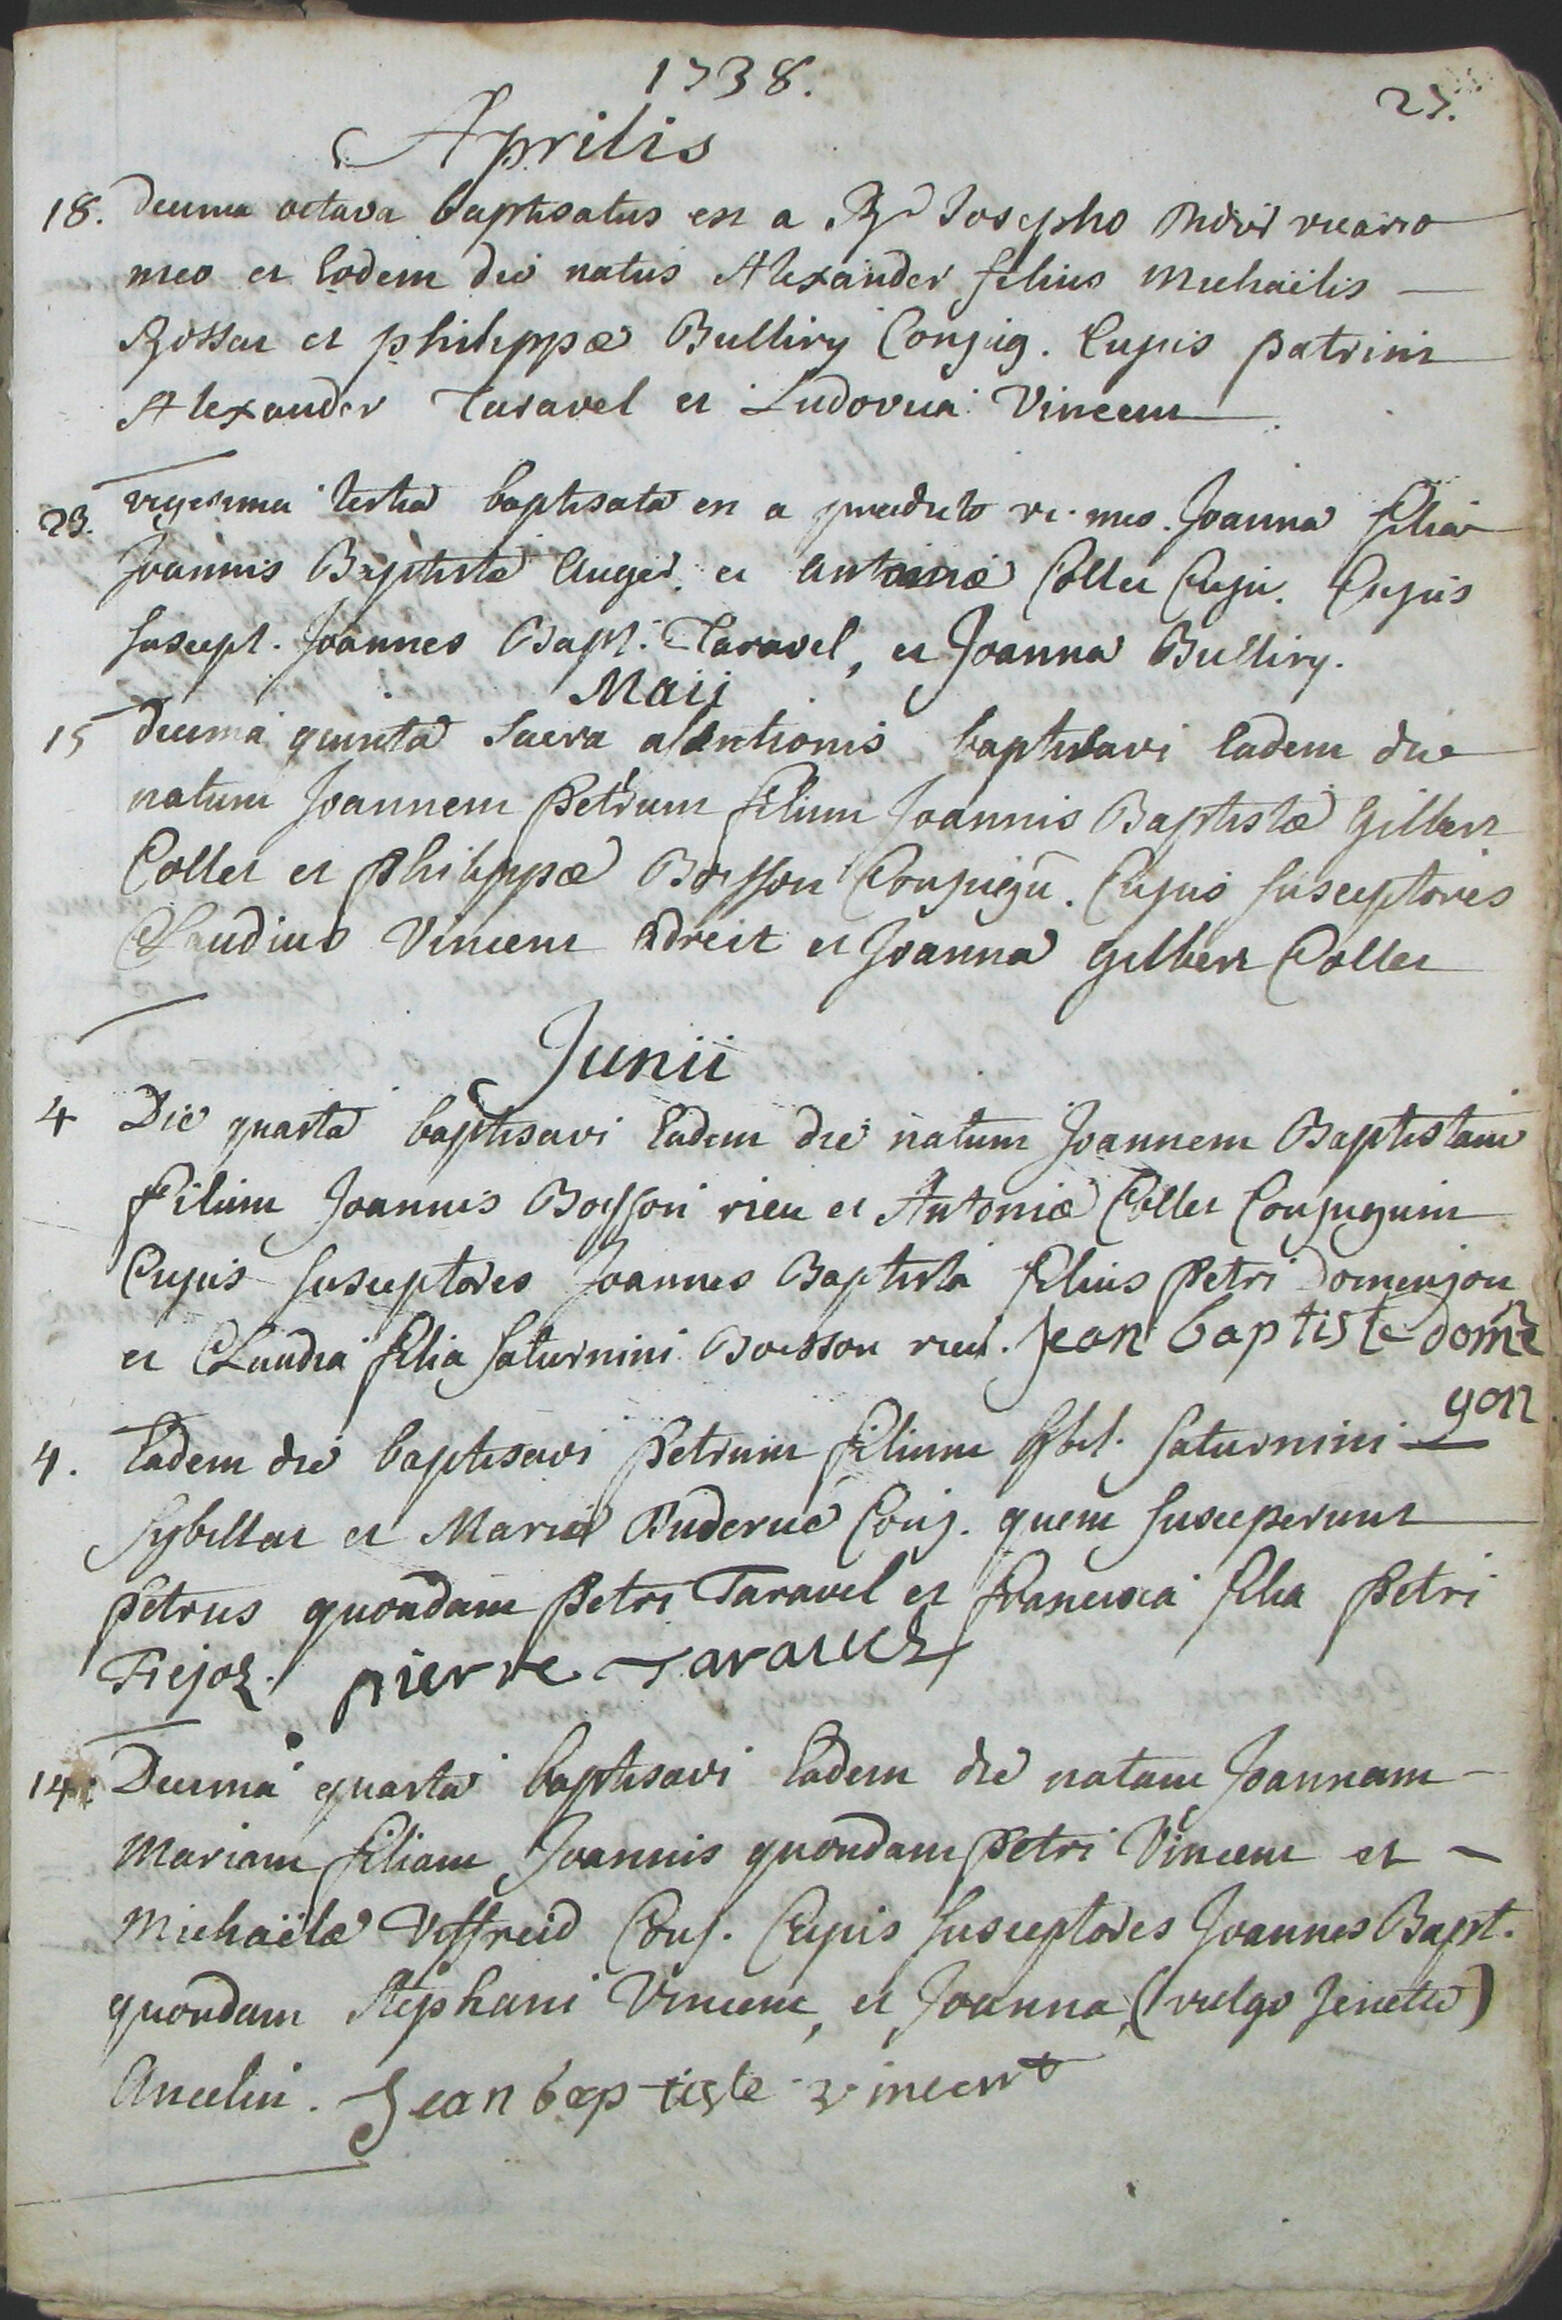 1738.
27.
Aprilis
18. decima octava baptisatus est a Rd Josepho vicario
meo et Eodem die natus Alexander filius Michaëlis
Rossat et philippæ Bulliry Conjug. Cujus patrini
Alexander Taravel et Ludovica Vincent
23. vigesima tertia baptisata est a prædicto vic. meo. Joanna filia
Joannis Baptistæ Auger et Antoniæ Collet Conju. Cujus
suscept. Joannes Bapt. Taravel, et Joanna Bulliry.
Maij
15 decima quinta Sacra asentionis baptisavi Eadem die
natum Joannem Petrum filium Joannis Baptistæ Gilbert
Collet et Philippæ Boisson Conjugũ. Cujus susceptores
Claudius Vincent Adreit et Joanna Gilbert Collet
Junii
4 Die quarta baptisavi Eadem die natum Joannem Baptistam
filium Joannis Boisson rieu et Antoniæ Collet Conjugum
Cujus susceptores Joannes Baptista filius Petri Domenjon
et Claudia filia Saturnini Boisson rieu. Jean baptiste domen
gon
4. Eadem die baptisavi Petrum filium Saturnini
Sybillat et Mariæ Conj. quem susceperunt
Petrus quondam Petri Taravel et francisca filia Petri
Frejoz. pierre Taravel
14. Decima quarta baptisavi Eadem die natam Joannam
Mariam filiam Joannis quondam Petri Vincent et
Michaëlæ Voffreid Conj. Cujus susceptores Joannes Bapt.
quondam Stephani Vincent, et Joanna (vulgo Jenette)
Ancelin. Jean baptiste vincent